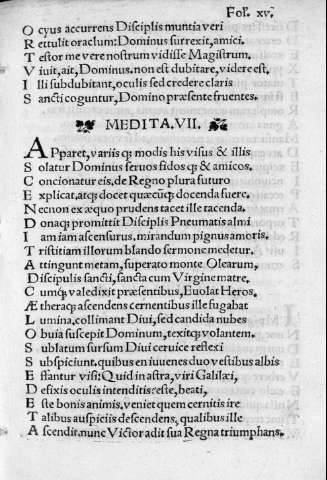 Fol. xv.
O cyus accurrens Disciplis nuntia veri
R ettulit oraclum: Dominus surrexit, amici.
T estor me vere nostrum vidisse Magistrum.
V iuit, ait, Dominus. non est dubitare, videre est,
I lli subdubitant, oculis sed credere claris
S ancti coguntur, Domino præsente fruentes.
MEDITA. VII.
A Pparet, variis q; modis his visus & illis
S olatur Dominus seruos fidos q; & amicos.
C oncionatur eis, de Regno plura futuro
E xplicat, atq; docet quæcũq; docenda fuere.
N ecnon ex æquo prudens tacet ille tacenda.
D onaq; promittit Disciplis Pneumatis almi
I am iam ascensurus. mirandum pignus amoris.
T ristitiam illorum blando sermone medetur.
A ttingunt metam, superato monte Olearum,
D iscipuli sancti, sancta cum Virgine matre.
C umq; valedixit præsentibus, Euolat Heros.
Æ theraq; ascendens cernentibus ille fugabat
L umina, collimant Diui, sed candida nubes
O buia suscepit Dominum, texitq; volantem.
S ublatum sursum Diui ceruice reflexi
S uspiciunt. quibus en iuuenes duo vestibus albis
E ffantur visi: Quid in astra, viri Galilæi,
D efixis oculis intenditis? este, beati,
E ste bonis animis. veniet quem cernitis ire
T alibus auspiciis descendens, qualibus ille
A scendit. nunc Victor adit sua Regna triumphans.